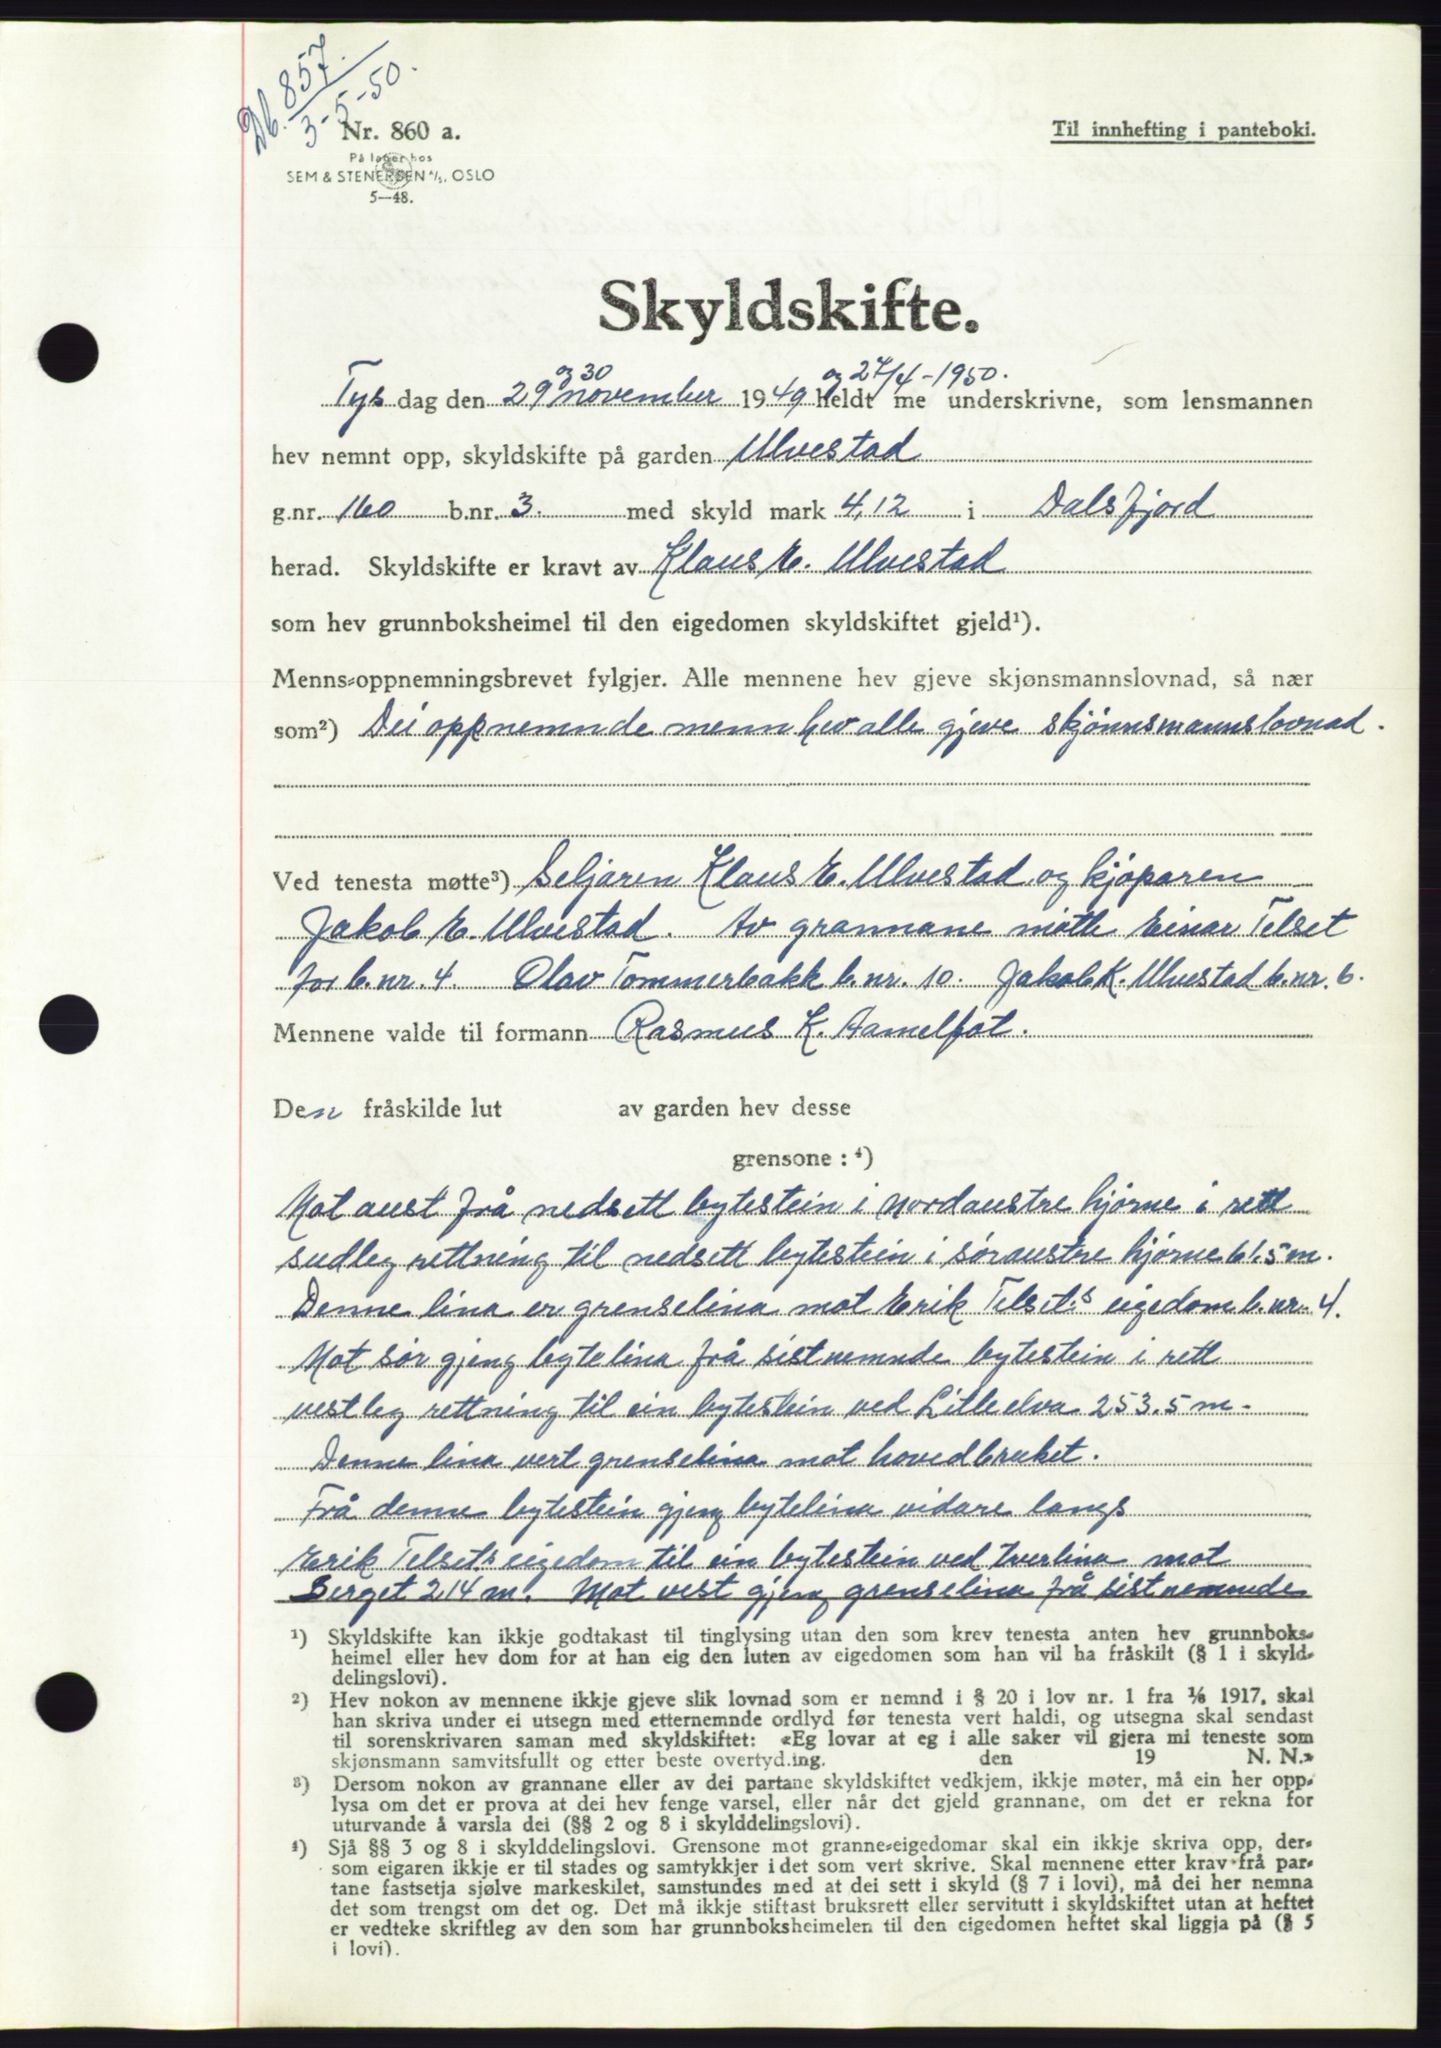 Db. 857.
3-5-50.
Nr. 860 a.
På lager hos
SEM & STENERSEN A/S, OSLO
5—48.
Til innhefting i panteboki.
Skyldskifte.
Tys dag den 29 og 30 november 1949 og 27/4-1950. heldt me underskrivne, som lensmannen
hev nemnt opp, skyldskifte på garden Ulvestad
g.nr. 160 b.nr. 3. med skyld mark 4,12 i Dalsfjord
herad. Skyldskifte er kravt av Klaus E. Ulvestad
som hev grunnboksheimel til den eigedomen skyldskiftet gjeld¹).
Menns-oppnemningsbrevet fylgjer. Alle mennene hev gjeve skjønsmannslovnad, så nær
som²) Dei oppnemnde menn hev alle gjeve skjönnsmannslovnad.
Ved tenesta møtte³) Seljaren Klaus E. Ulvestad og kjöparen
Jakob E. Ulvestad. Av grannane mötte Einar Telset
for b.nr. 4. Olav Tommerbakk b.nr. 10. Jakob K. Ulvestad b.nr. 6.
Mennene valde til formann Rasmus K. Aamelfot.
Den fråskilde lut av garden hev desse
grensone : ⁴)
Mot aust frå nedsett bytestein i nordaustre hjörne i rett
sudleg rettning til nedsett bytestein i söraustre hjörne 61.5 m.
Denne lina er grenselina mot Erik Telset's eigedom b.nr. 4.
Mot sör gjeng bytelina frå sistnemnde bytestein i rett
vestleg rettning til ein bytestein ved Litleelva 253.5 m.
Denne lina vert grenselina mot hovedbruket.
Frå denne bytestein gjeng bytelina vidare langs
Erik Telsets eigedom til ein bytestein ved tverlina mot
Berget 214 m. Mot vest gjeng grenselina frå sistnemnde
¹) Skyldskifte kan ikkje godtakast til tinglysing utan den som krev tenesta anten hev grunnboks-
heimel eller hev dom for at han eig den luten av eigedomen som han vil ha fråskilt (§ 1 i skyld-
delingslovi).
²) Hev nokon av mennene ikkje gjeve slik lovnad som er nemnd i § 20 i lov nr. 1 fra 1/6 1917, skal
han skriva under ei utsegn med etternemnde ordlyd før tenesta vert haldi, og utsegna skal sendast
til sorenskrivaren saman med skyldskiftet: «Eg lovar at eg i alle saker vil gjera mi teneste som
skjønsmann samvitsfullt og etter beste overtyd.ing. den 19 N. N.»
³) Dersom nokon av grannane eller av dei partane skyldskiftet vedkjem, ikkje møter, må ein her opp-
lysa om det er prova at dei hev fenge varsel, eller når det gjeld grannane, om det er rekna for
uturvande å varsla dei (§§ 2 og 8 i skylddelingslovi).
⁴) Sjå §§ 3 og 8 i skylddelingslovi. Grensone mot granne-eigedomar skal ein ikkje skriva opp, der-
som eigaren ikkje er til stades og samtykkjer i det som vert skrive. Skal mennene etter krav frå par-
tane fastsetja sjølve markeskilet, samstundes med at dei sett i skyld (§ 7 i lovi), må dei her nemna
det som trengst om det og. Det må ikkje stiftast bruksrett eller servitutt i skyldskiftet utan at heftet
er vedteke skriftleg av den som har grunnboksheimelen til den eigedomen heftet skal liggja på (§ 5
i lovi).